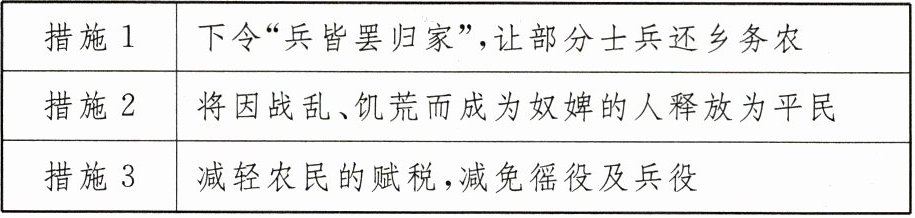 措施1 下令“兵皆罢归家”,让部分士兵还乡务农
措施2 将因战乱、饥荒而成为奴婢的人释放为平民
措施3 减轻农民的赋税,减免徭役及兵役